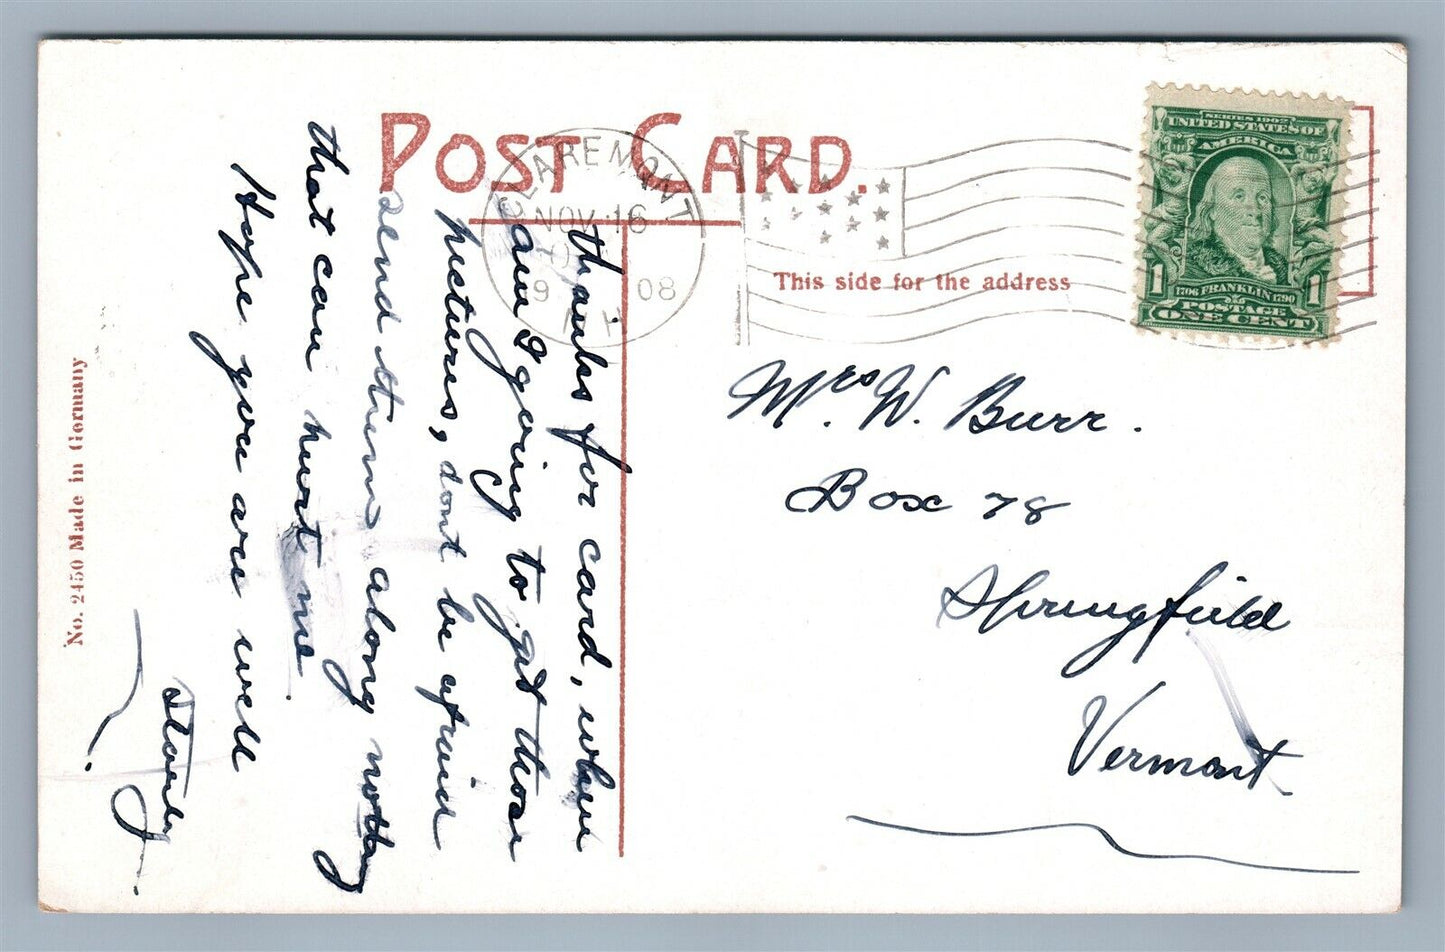 POST CARD.
CLAREMONT
NOV 16
9
08
N.H.
SERIES 1902
UNITED STATES OF
AMERICA
1 1
1706 FRANKLIN 1790
POSTAGE
ONE CENT
This side for the address
Mrs W. Burr.
Box 78
Springfield
Vermont
thanks for card, when
am I going to get those
pictures, dont be afraid
send them along nothing
that can hurt me.
Hope you are well
Stanley
J.
No. 2450 Made in Germany